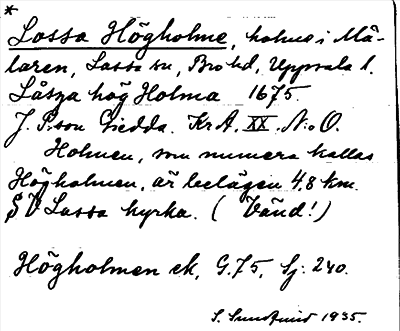 *
Lossa Högholme, holme i Mä-
laren, Lossa sn, Bro hd, Uppsala l.
Låsza hög Holma 1675.
J. P:son Giedda. KrA. XX. N:o O.
Holmen, som numera kallas
Högholmen, är belägen 4,8 km
SV Lossa kyrka. ( Vänd! )
Högholmen ek, G.75, Sj: 240.
S. Sundquist 1935.